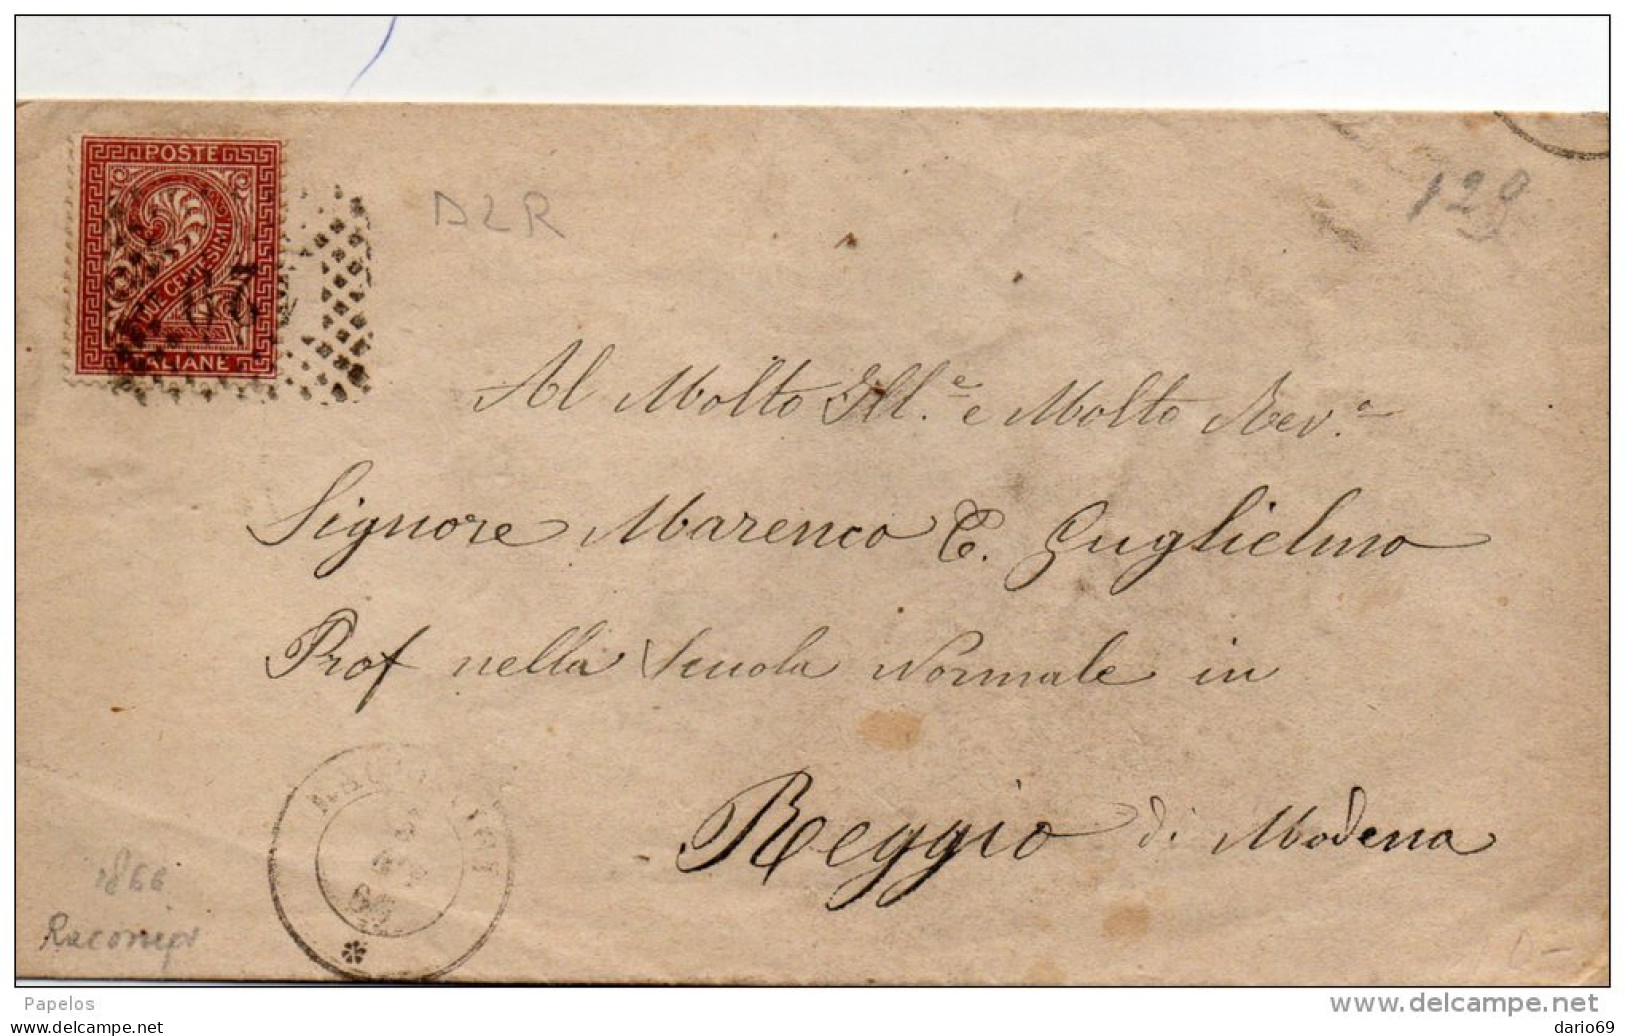 POSTE
DUE CENTESIMI
ITALIANE
D2R
129
Al Molto Ill.e e Molto Rev.o
Signore Marenco C. Guglielmo
Prof nella Scuola Normale in
Reggio di Modena
66
1866
Raconigi
D-
Papelos
www.delcampe.net
dario69